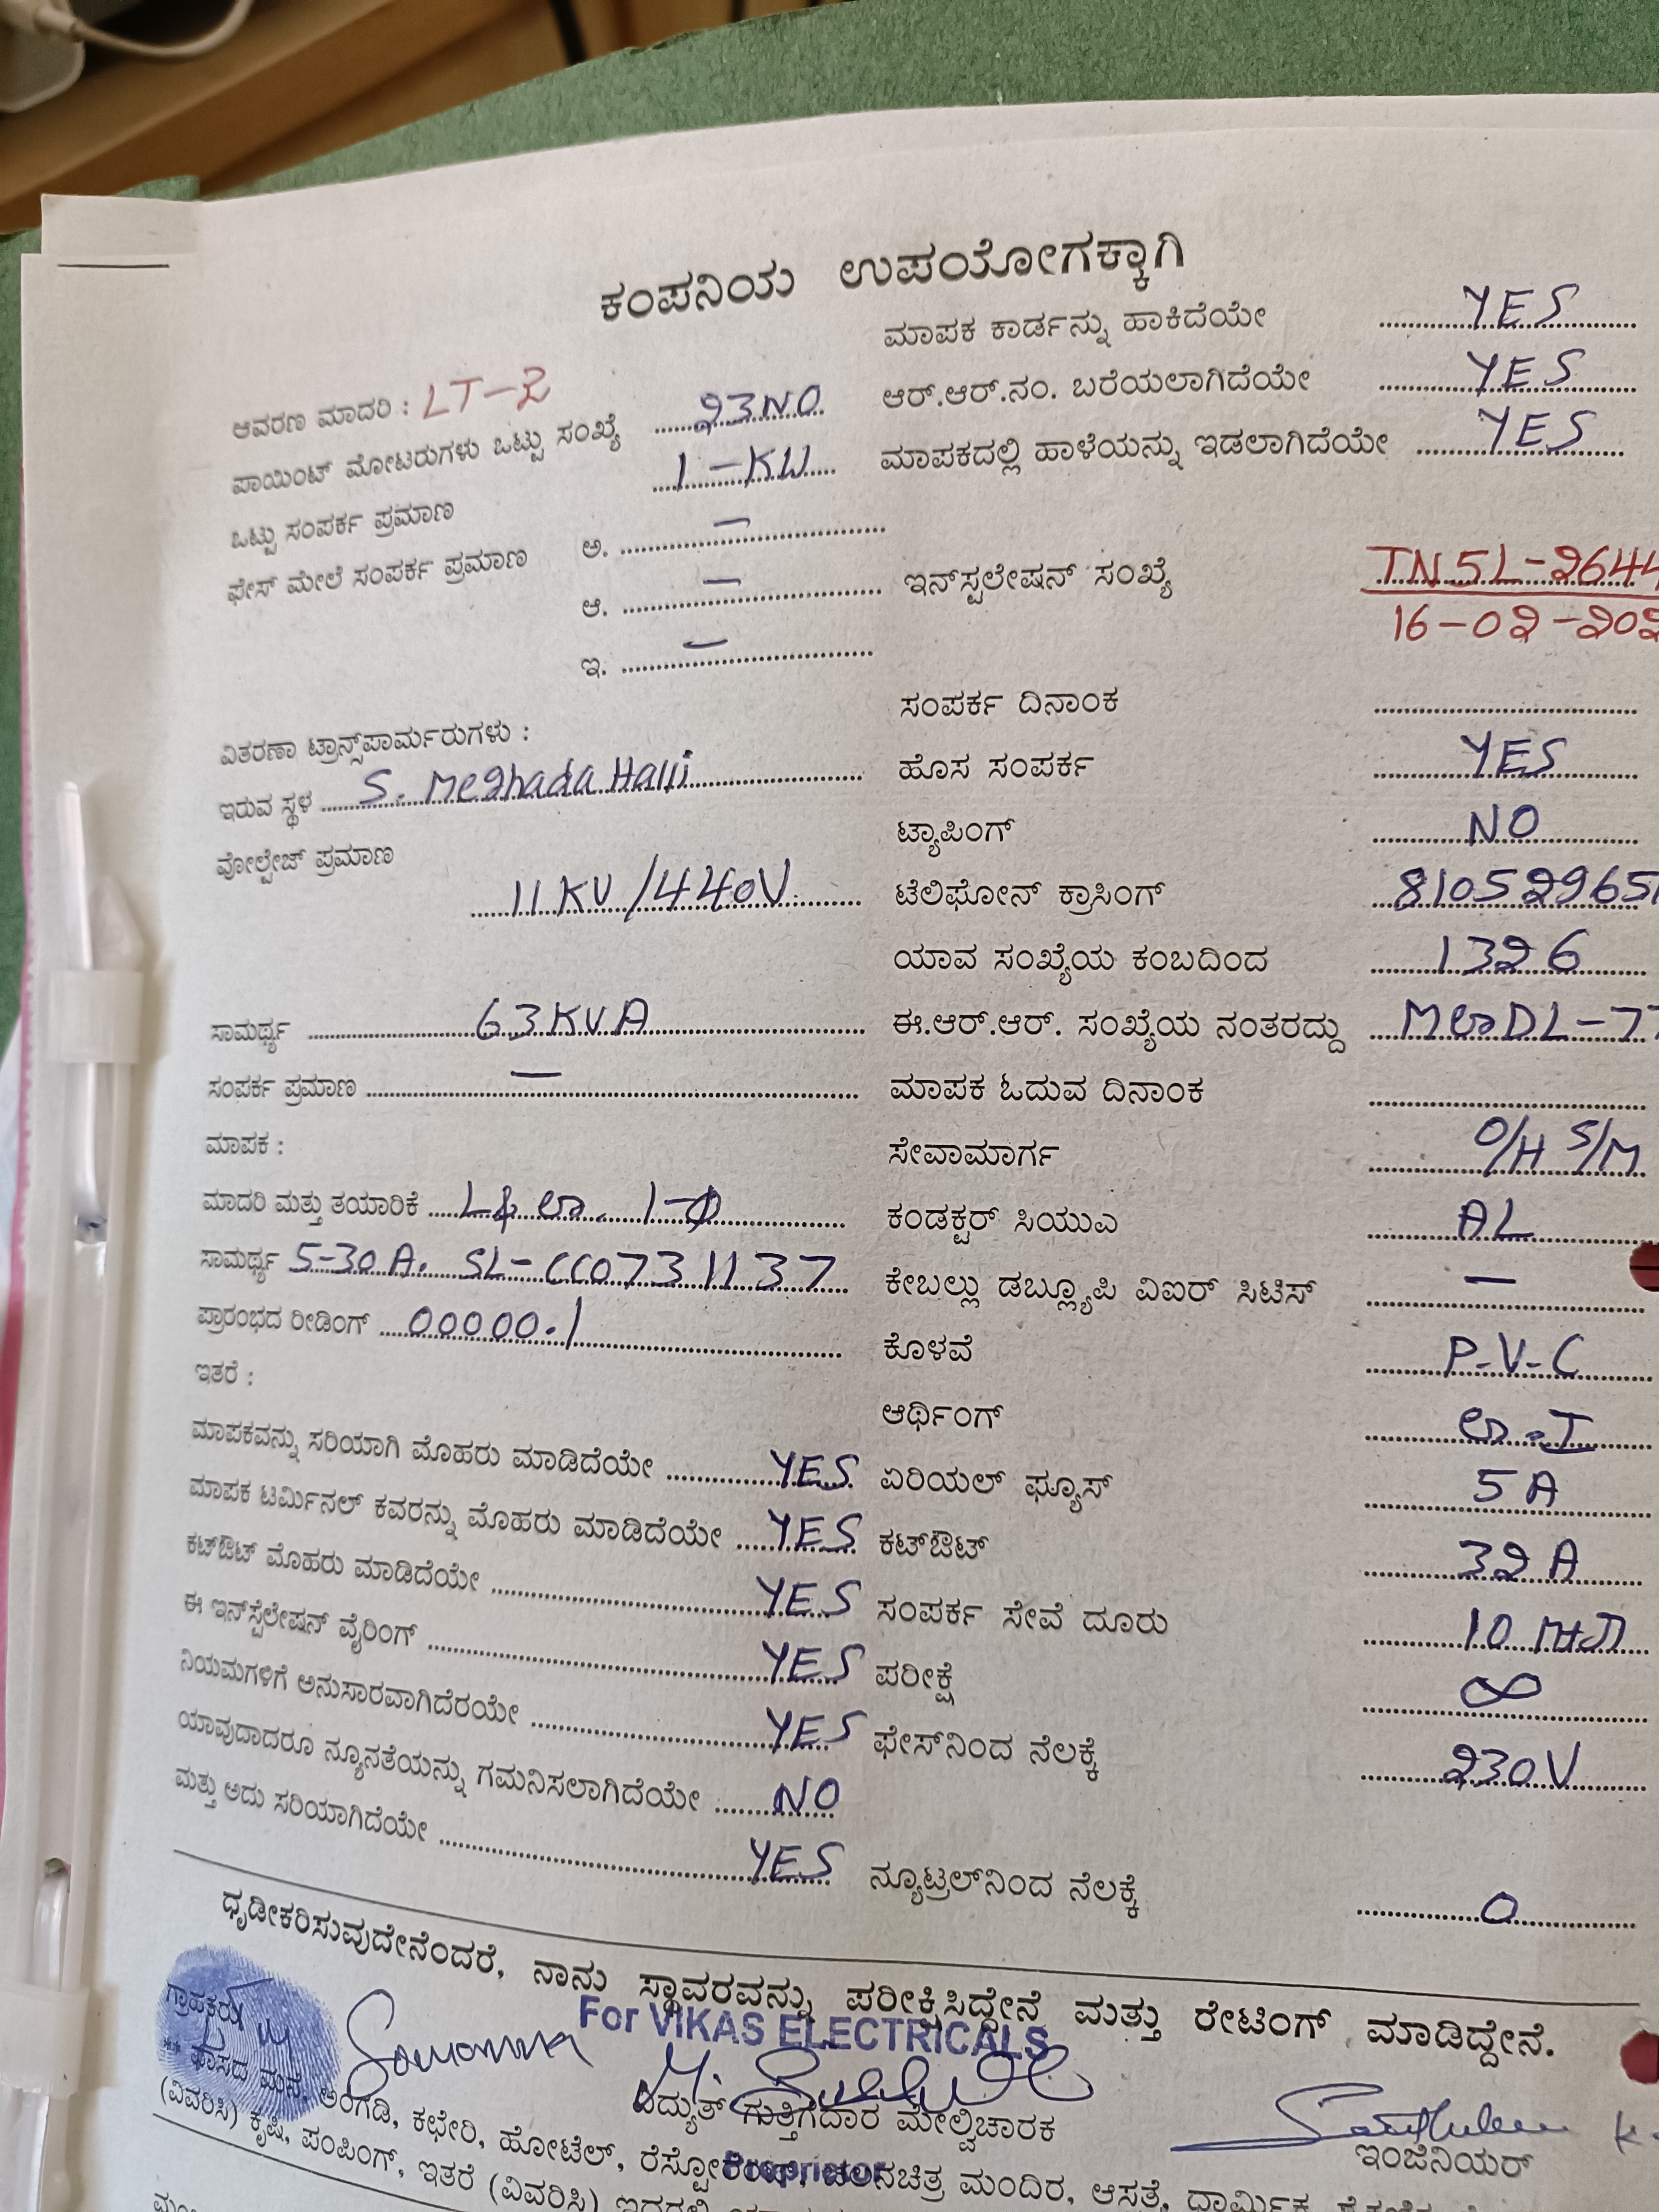 ಕಂಪನಿಯ ಉಪಯೋಗಕ್ಕಾಗಿ
ಆವರಣ ಮಾದರಿ : LT-2
ಪಾಯಿಂಟ್ ಮೋಟರುಗಳು ಒಟ್ಟು ಸಂಖ್ಯೆ 23NO
ಒಟ್ಟು ಸಂಪರ್ಕ ಪ್ರಮಾಣ 1-KW
ಫೇಸ್ ಮೇಲೆ ಸಂಪರ್ಕ ಪ್ರಮಾಣ ಅ. —
ಆ. —
ಇ. —
ವಿತರಣಾ ಟ್ರಾನ್ಸ್‌ಪಾರ್ಮರುಗಳು :
ಇರುವ ಸ್ಥಳ S. Meghada Halli
ವೋಲ್ಟೇಜ್ ಪ್ರಮಾಣ
11KV/440V
ಸಾಮರ್ಥ್ಯ 63KVA
ಸಂಪರ್ಕ ಪ್ರಮಾಣ —
ಮಾಪಕ :
ಮಾದರಿ ಮತ್ತು ತಯಾರಿಕೆ 1-ϕ
ಸಾಮರ್ಥ್ಯ 5-30A. SL-CC0731137
ಪ್ರಾರಂಭದ ರೀಡಿಂಗ್ 00000.1
ಇತರೆ :
ಮಾಪಕವನ್ನು ಸರಿಯಾಗಿ ಮೊಹರು ಮಾಡಿದೆಯೇ YES
ಮಾಪಕ ಟರ್ಮಿನಲ್ ಕವರನ್ನು ಮೊಹರು ಮಾಡಿದೆಯೇ YES
ಕಟ್‌ಔಟ್ ಮೊಹರು ಮಾಡಿದೆಯೇ YES
ಈ ಇನ್‌ಸ್ಟೆಲೇಷನ್ ವೈರಿಂಗ್ YES
ನಿಯಮಗಳಿಗೆ ಅನುಸಾರವಾಗಿದೆರಯೇ YES
ಯಾವುದಾದರೂ ನ್ಯೂನತೆಯನ್ನು ಗಮನಿಸಲಾಗಿದೆಯೇ NO
ಮತ್ತು ಅದು ಸರಿಯಾಗಿದೆಯೇ YES
ಮಾಪಕ ಕಾರ್ಡನ್ನು ಹಾಕಿದೆಯೇ YES
ಆರ್.ಆರ್.ನಂ. ಬರೆಯಲಾಗಿದೆಯೇ YES
ಮಾಪಕದಲ್ಲಿ ಹಾಳೆಯನ್ನು ಇಡಲಾಗಿದೆಯೇ YES
ಇನ್‌ಸ್ಟಲೇಷನ್ ಸಂಖ್ಯೆ TN5L-2644
16-02-202
ಸಂಪರ್ಕ ದಿನಾಂಕ
ಹೊಸ ಸಂಪರ್ಕ YES
ಟ್ಯಾಪಿಂಗ್ NO
ಟೆಲಿಫೋನ್ ಕ್ರಾಸಿಂಗ್ 810529651
ಯಾವ ಸಂಖ್ಯೆಯ ಕಂಬದಿಂದ 1326
ಈ.ಆರ್.ಆರ್. ಸಂಖ್ಯೆಯ ನಂತರದ್ದು
ಮಾಪಕ ಓದುವ ದಿನಾಂಕ
ಸೇವಾಮಾರ್ಗ O/H S/M
ಕಂಡಕ್ಟರ್ ಸಿಯುಎ AL
ಕೇಬಲ್ಲು ಡಬ್ಲ್ಯೂಪಿ ವಿಐರ್ ಸಿಟಿಸ್ —
ಕೊಳವೆ P-V-C
ಆರ್ಥಿಂಗ್
ಏರಿಯಲ್ ಫ್ಯೂಸ್ 5A
ಕಟ್‌ಔಟ್ 32A
ಸಂಪರ್ಕ ಸೇವೆ ದೂರು 10
ಪರೀಕ್ಷೆ ∞
ಫೇಸ್‌ನಿಂದ ನೆಲಕ್ಕೆ 230V
ನ್ಯೂಟ್ರಲ್‌ನಿಂದ ನೆಲಕ್ಕೆ 0
ಧೃಡೀಕರಿಸುವುದೇನೆಂದರೆ, ನಾನು ಸ್ಥಾವರವನ್ನು ಪರೀಕ್ಷಿಸಿದ್ದೇನೆ ಮತ್ತು ರೇಟಿಂಗ್ ಮಾಡಿದ್ದೇನೆ.
For VIKAS ELECTRICALS
ಗ್ರಾಹಕರು
ವಿದ್ಯುತ್ ಗುತ್ತಿಗೆದಾರ ಮೇಲ್ವಿಚಾರಕ
ಇಂಜಿನಿಯರ್
Proprietor
** ವಾಸದ ಮನೆ, ಅಂಗಡಿ, ಕಛೇರಿ, ಹೋಟೆಲ್, ಚಲನಚಿತ್ರ ಮಂದಿರ, ಆಸತ್ರೆ, ಧಾರ್ಮಿಕ
(ವಿವರಿಸಿ) ಕೃಷಿ, ಪಂಪಿಂಗ್, ಇತರೆ (ವಿವರಿಸಿ)